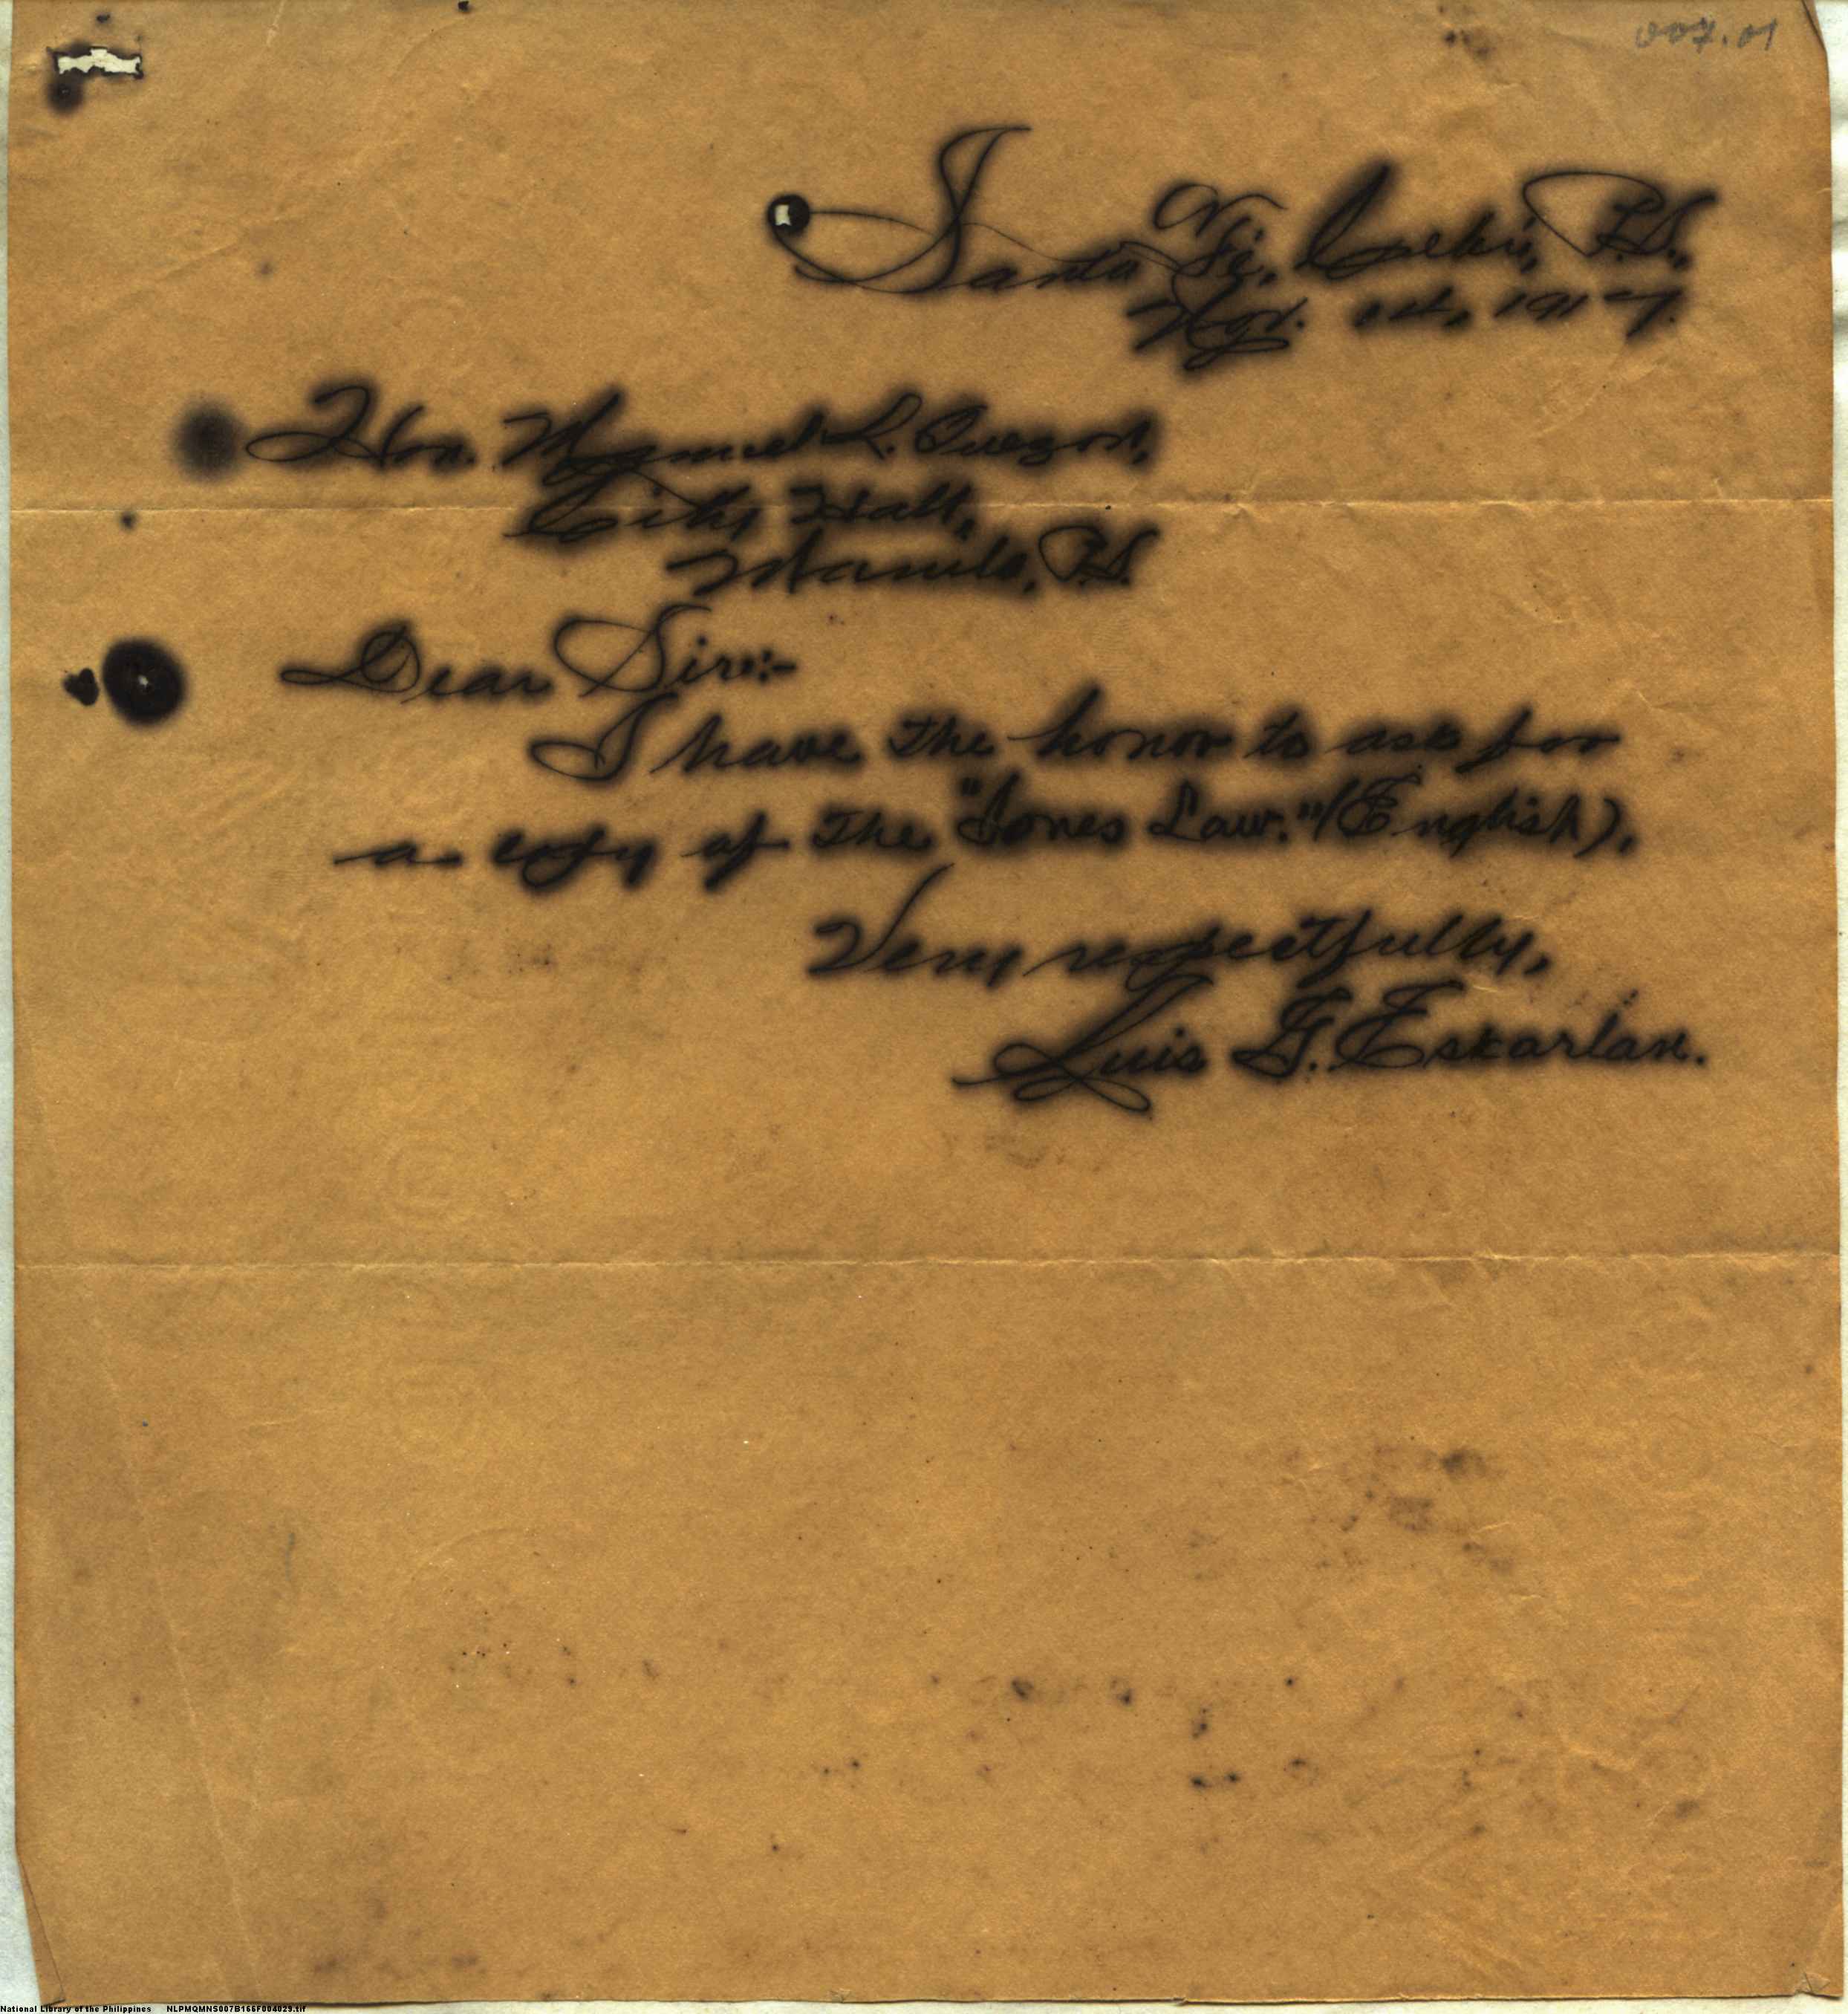 007.01
Santa Fe, Cebu, P.I.,
Nov. 24, 1917.
Hon. Manuel L. Quezon,
City Hall,
Manila, P.I.
Dear Sir:-
I have the honor to ask for
a copy of the "Jones Law." (English).
Very respectfully,
Luis G. Eskarlan.
National Library of the Philippines NLPMQMNS007B166F004029.tif